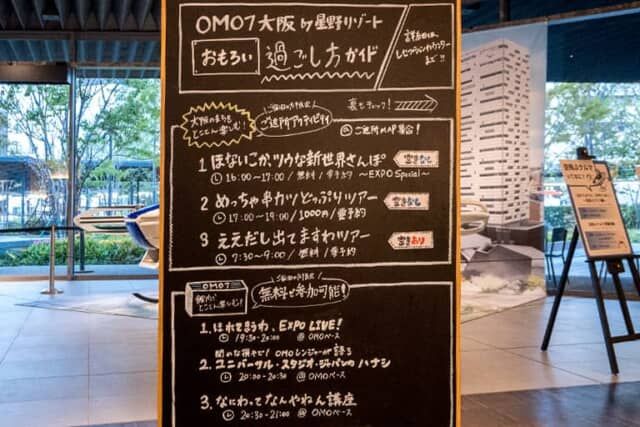 OMO7大阪 by 星野リゾート
おもろい 過ごし方ガイド
詳細は
レセプションカウンター
まで!!
大阪のまちを
とことん楽しむ!
ご近所アクティビティ
裏もチェック!
@ご近所MAP集合!
1 ほないこか、ツウな新世界さんぽ 空きなし
16:00~17:00/無料/要予約 ~EXPO Special~
2 めっちゃ串カツどっぷりツアー 空きなし
17:00~19:00/1000円/要予約
3 ええだし出てますわツアー 空きあり
7:30~9:00/無料/要予約
OMO7
館内で
とことん楽しむ!
無料で参加可能!
1. ほれてまうわ、EXPO LIVE!
19:30-20:00 @OMOベース
OMOレンジャーが語る
2. ユニバーサル・スタジオ・ジャパンのハナシ
20:00-20:30 @OMOベース
3. なにわってなんやねん講座
20:30-21:00 @OMOベース